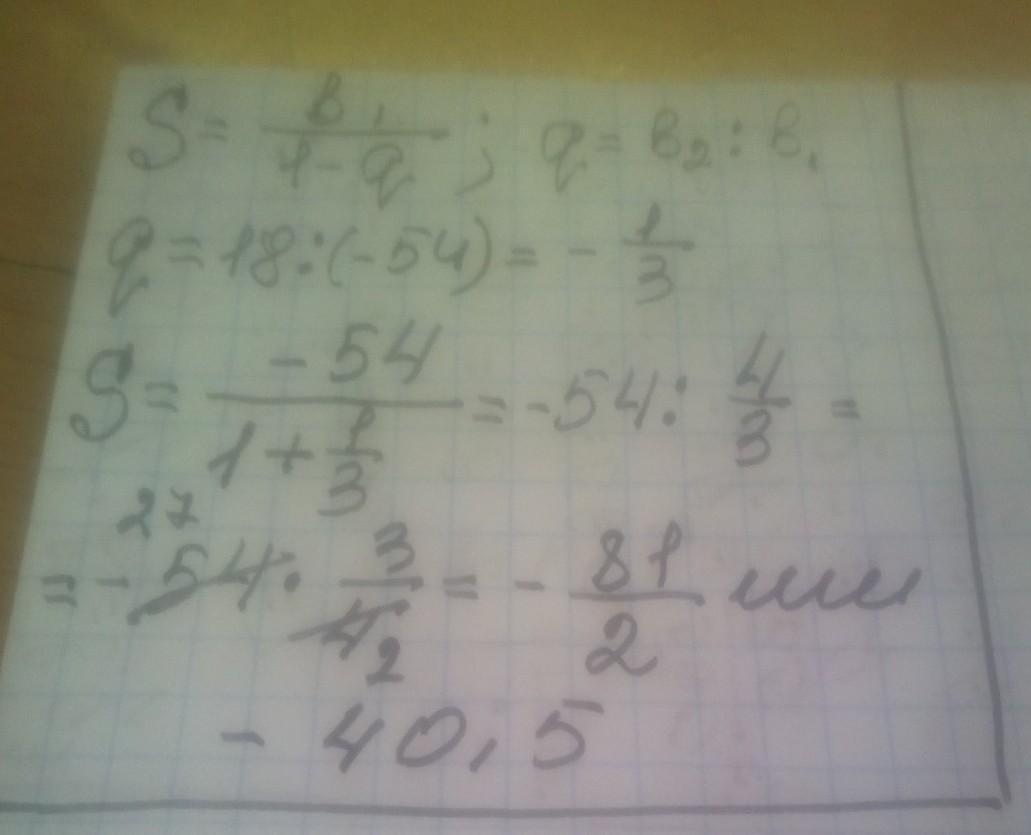 S = в₁/(1-q) ; q = в₂ : в₁
q = 18 : (-54) = - 1/3
S = -54/(1 + 1/3) = -54 : 4/3 =
27
= - 54 · 3/4 2 = - 81/2 или
- 40,5